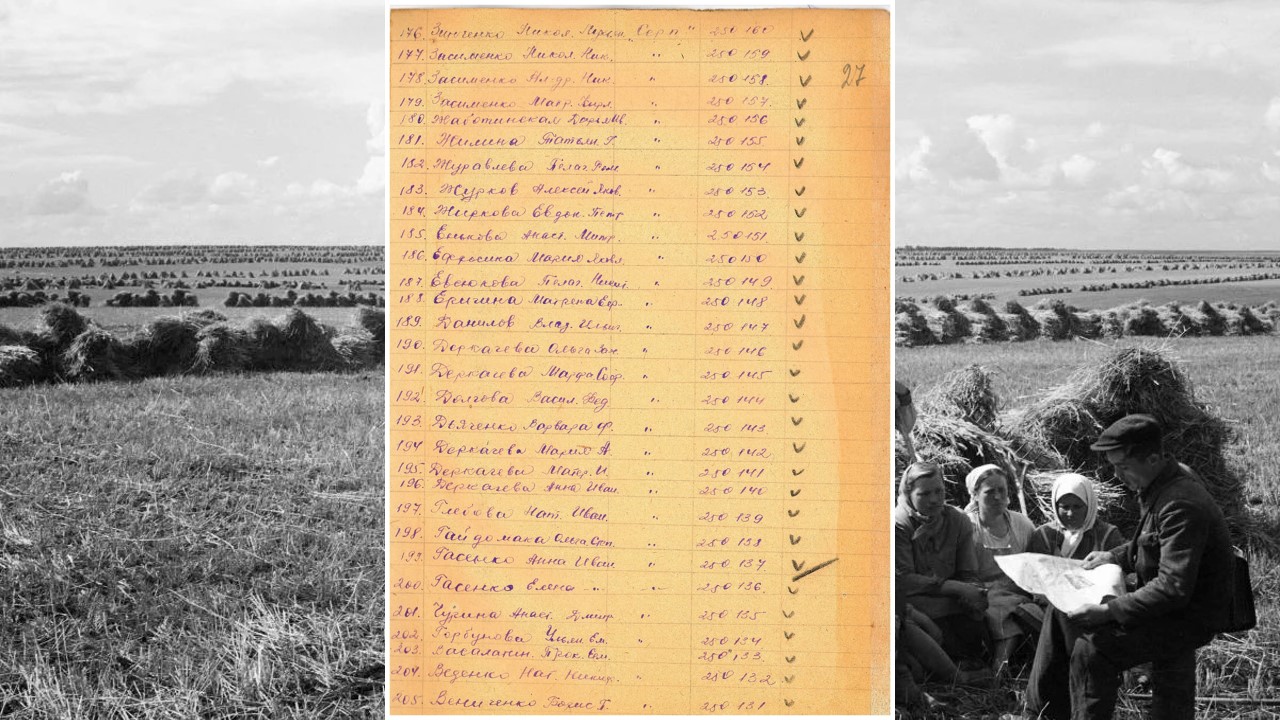 176. Зинченко Никол. "Серп" 250 160
27
177. Засименко Никол. Ник. " 250 159
178. Засименко Ал-др. Ник. " 250 158.
179. Засименко Матр. Кирл. " 250 157.
180. Жаботинская Дарья Ив. " 250 156
181. Жилина Татьян. Г. " 250 155
182. Журавлева Пелаг. Ром. " 250 154
183. Журков Алексей Яков. " 250 153.
184. Жиркова Евдок. Петр " 250 152
185. Енькова Анаст. Митр. " 250 151.
186. Ефросина Мария Яковл. " 250 150
187. Евсюкова Пелаг. " 250 149.
188. Еригина Матрена " 250 148
189. Данилов Влад. " 250 147
190. Деркачева Ольга " 250 146
191. Деркачева Марфа " 250 145
192. Долгова Васил. Фед. " 250 144
193. Дьяченко Варвара Ф. " 250 143
194 Деркачева Мария А. " 250 142
195. Деркачева Матр. И. " 250 141
196. Деркачева Анна Иван. " 250 140
197. Глебова Нат. Иван. " 250 139
198. Гайдомака Ольга Степ. " 250 138
199. Гасенко Анна Иван " 250 137
200. Гасенко Елена -"- -"- 250 136.
201. Анаст. Дмитр " 250 135
202. Горбунова Ульян Ем. " 250 134
203. Вабалатин. Прок. Ем. 250 133.
204. Веденко Нат. Никиф. " 250 132
205. Вениченко Борис Г. " 250 131